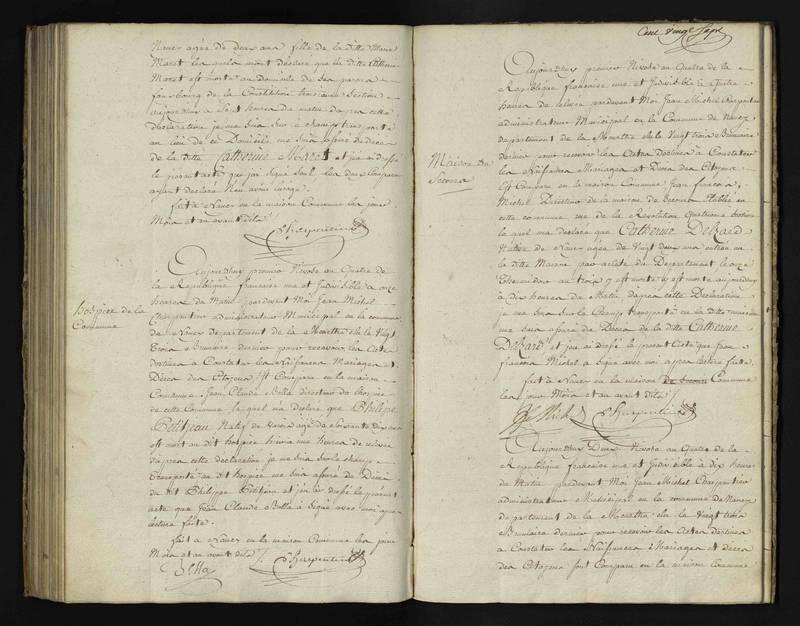 Nancy agée de deux ans fille de la ditte Marie
Maret les quels m'ont déclaré que la ditte Catherine
Maret est morte au domicile de ses pareus
fauxbourg de la Constitution troisieme Section
aujourdhuy a huit heures du matin d'apres cette
déclaration je me suis sur le champ transporté
au lieu de ce Domicile me suis assuré du deces
de la ditte Catherine Maret et j'ai dressé
le present acte que j'ai signé seul les dits Comparans
ayant declaré n'en avoir l'usage
fait à Nancy en la maison Commune les jour
Mois et an avant dits
Charpentier
hospice de la
Commune
Aujourdhuy premier Nivose an Quatre de
la Republique française une et Indivisible a onze
heures du Matin pardevant Moi Jean Michel
Charpentier administrateur Municipal en la commune
de Nancy departement de la Meurthe elu le Vingt
trois Brumaire dernier pour recevoir les Actes
destinés à Constater les Naissances Mariages et
Décès des Citoyens Est Comparu en la maison
Commune Jean Claude Bella directeur du hospice
de cette Commune le quel m'a déclaré que Philipe
Petitjean Natif de agé de soixante dix ans
est mort au dit hospice hier a une heures de relevée
d'apres cette declaration je me suis sur le champ
transporté au dit hospice me suis assuré du Deces
du dit Philippe Petitjean et j'en ai dressé le present
acte que Jean Claude Bella a signé avec moi apres
lecture faite.
fait a Nancy en la maison Commune les jour
Mois et an avant dits
Bella Charpentier
Cent vingt Sept
Aujourdhuy premier Nivose an Quatre de la
Republique française une et Indivisible a Quatre
heures de relevée pardevant Moi Jean Michel Charpentier
administrateur Municipal en la commune de Nancy
departement de la Meurthe elu le Vingt trois Brumaire
dernier pour recevoir les Actes destinés à Constater
les Naissances Mariages et Deces des Citoyens
Maison de
Secours
Est Comparu en la maison Commune Jean francois
Michel Directeur de la maison de Secours Etablie en
cette commune rue de la Revolution Quatrieme Section
le quel m'a declaré que Catherine Delzard
Native de Nancy agée de Vingt deux ans entrée en
la ditte Maison par arreté du Departement le onze
Thermidor an trois y est morte aujourdhuy
à dix heures du Matin d'apres cette Déclaration
je me suis sur le Champ transporté en la ditte maison
me suis assuré du Deces de la ditte Catherine
Delzard et j'ai ai dressé le present acte que jean
francois Michel a signé avec moi apres lecture faite.
fait à Nancy en la maison de secours Commune
les jour Mois et an avant dits
Michel Charpentier
Aujourdhuy Deux Nivose an Quatre de la
Republique française une et Indivisible à dix heures
du Matin pardevant Moi Jean Michel Charpentier
administrateur Municipal en la commune de Nancy
departement de la Meurthe elu le Vingt trois
Brumaire dernier pour recevoir les Actes destinés
a Constater les Naissances Mariages et deces
des Citoyens sont Comparu en la maison Commune